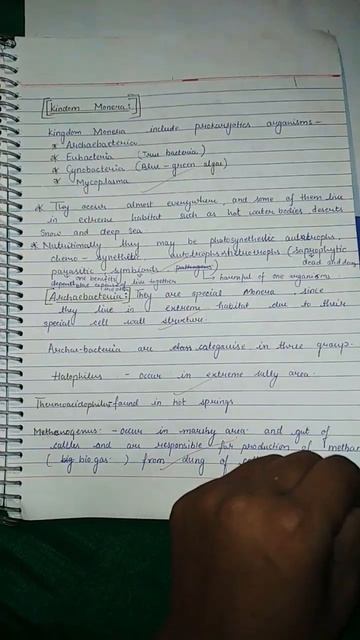 Kindom Monera :
Kingdom Monera include prokaryotics organisms -
* Archaebacteria
* Eubacteria (True bacteria)
* Cynobacteria (Blue - green algae)
* Mycoplasma
* They occurs almost everywhere, and some of them live
in extreme habitat such as hot water bodies, deserts
Snow and deep sea.
* Nutritionally they may be photosynthetic autotrophs,
chemo - synthetic autotrophs, heterotrophs (saprophytic
dead and decay
parasitic symbionts pathogens) harmful of one organisms
one benefits live together
Archaebacteria : They are special Monera since
they live in extreme habitat due to their
special cell wall structure.
Archae-bacteria are categarise in three group.
Halophilus - occur in extreme salty area.
Thermoacidophilus found in hot springs
Methanogenus :- occur in marshy area and gut of
cattles and are responsible for production of methan
(bio gas) from dung of